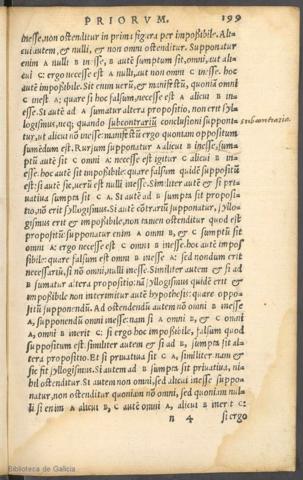 PRIORVM. 199
inesse, non ostenditur in prima figura per impoßibile. Ali-
cui autem, & nulli, & non omni ostenditur. Supponatur
enim A nulli B inesse, B autē sumptum sit, omni, aut ali-
cui C: ergo necesse est A nulli, aut non omni C inesse. hoc
autē impoßibile. Sit enim verū, & manifestū, quoniā omni
C inest A: quare si hoc falsum, necesse est A alicui B in-
esse. Si autē ad A sumatur altera propositio, non erit syl-
logismus, neq; quando subcontrariū conclusioni supponi-
tur, ut alicui nō inesse: manifestū ergo quoniam oppositum
sumēdum est. Rursum supponatur A alicui B inesse, sum-
ptū autē sit C omni A: necesse est igitur C alicui B in-
esse. hoc autē sit impoßibile: quare falsum quidē suppositū
est: si autē sic, verū est nulli inesse. Similiter autē & si pri-
uatiua sumpta sit C A. Si autē ad B sumpta sit propositi-
tio, nō erit syllogismus. Si autē cōtrariū supponatur, syllo-
gismus erit & impoßibile, non tamen ostenditur quod est
propositū: supponatur enim A omni B, & C sumptū sit
omni A: ergo necesse est C omni B inesse. hoc autē impos
sibile: quare falsum est omni B inesse A: sed nondum erit
necessariū, si nō omni, nulli inesse. Similiter autem & si ad
B sumatur altera propositio: nā syllogismus quidē erit &
impoßibile non interimitur autē hypothesis: quare oppo-
situm supponendū. Ad ostendendū autem nō omni B inesse
A, supponendū omni inesse: nam si A omni B, & C omni
A, omni B inerit C: si ergo hoc impoßibile, falsum quod
suppositum est. similiter autem & si ad B, sumpta sit al-
tera propositio. Et si priuatiua sit C A, similiter. nam &
sic fit syllogismus. Si autem ad B sumpta sit priuatiua, ni-
hil ostenditur. Si autem non omni, sed alicui inesse suppo-
natur, non ostenditur quoniam nō omni, sed quoniam nul-
li si enim A alicui B, C autē omni A, alicui B inerit C:
n 4 si ergo
subcontraria.
Biblioteca de Galicia